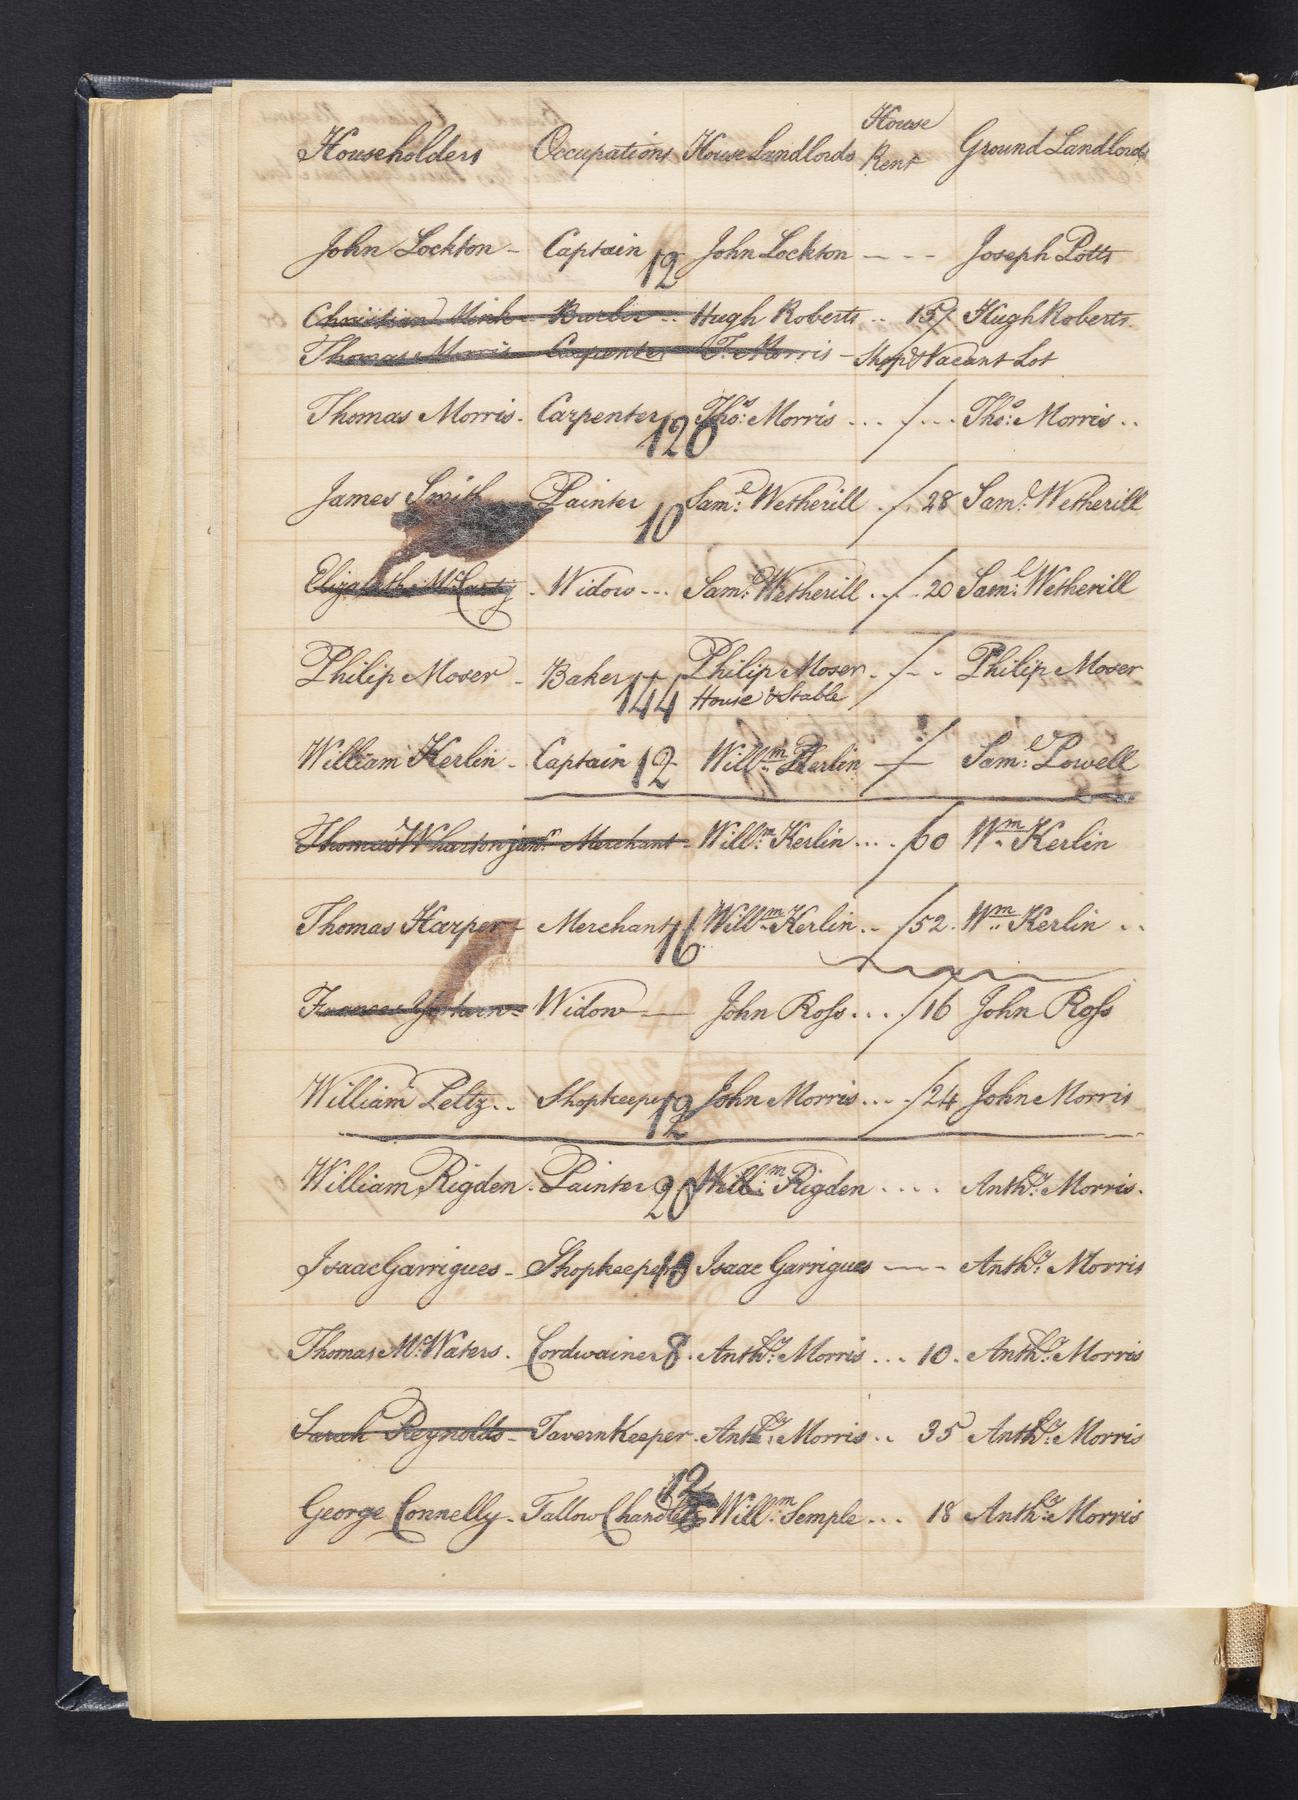 Householders Occupations House Landlords House Rent Ground Landlords
John Lockton - Captain 12 John Lockton - - - Joseph Potts
Christian Barber .. Hugh Roberts .. 15 Hugh Roberts
Thomas Morris Carpenter T. Morris - Shop & Vacant Lot
Thomas Morris . Carpenter 120 Thos: Morris ... / ... Tho: Morris ..
James Smith Painter 10 Saml: Wetherill . / . 28 Saml: Wetherill
Elizabeth McCarty . Widow ... Saml: Wetherill . / . 20 Saml: Wetherill
Philip Moser - Baker 144 Philip Moser . / - - Philip Moser
House & Stable
William Kerlin - Captain 12 Willm: Kerlin / Saml: Powell
Thomas Wharton junr. Merchant - Willm: Kerlin .... /60 Wm. Kerlin
Thomas Harper - Merchant 16 Willm: Kerlin .. /52. Wm. Kerlin ..
Frances Widow John Ross .... /16 John Ross
William Peltz .. Shopkeeper 12 John Morris .... /24 John Morris
William Rigden . Painter 20 Willm: Rigden .... Anthy: Morris.
Isaac Garrigues - Shopkeeper 10 Isaac Garrigues --- Anthy: Morris
Thomas McWaters . Cordwainer 8 . Anthy: Morris ... 10 . Anthy: Morris
Sarah Reynolds - Tavernkeeper . Anthy: Morris .. 35 Anthy: Morris
George Connelly - Tallow Chandler 12 Willm: Semple ... 18 Anthy: Morris